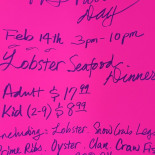 Day
Feb 14th 3pm-10pm
Lobster Seafood
Dinner
Adult $17.99
Kid (2-9) $8.99
Including: Lobster. Snow Crab Legs
Prime Ribs. Oyster. Clam Craw Fis